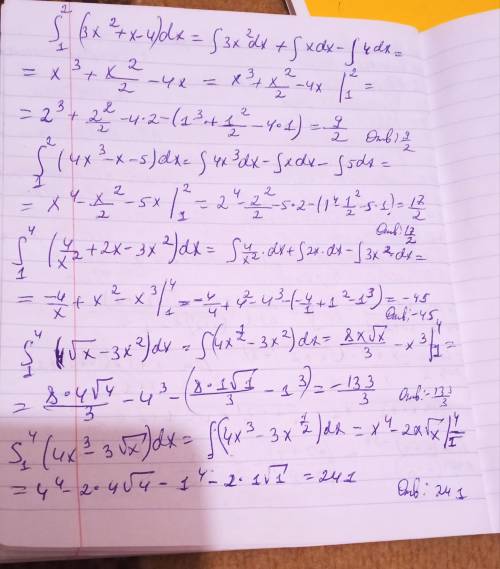 ∫₁² (3x² + x - 4)dx = ∫3x²dx + ∫xdx - ∫4dx =
= x³ + x²/2 - 4x = x³ + x²/2 - 4x |₁² =
= 2³ + 2²/2 - 4·2 - (1³ + 1²/2 - 4·1) = 9/2 Отв: 9/2
∫₁² (4x³ - x - 5)dx = ∫4x³dx - ∫xdx - ∫5dx =
= x⁴ - x²/2 - 5x |₁² = 2⁴ - 2²/2 - 5·2 - (1⁴ 1²/2 - 5·1) = 17/2
Отв: 17/2
∫₁⁴ (4/x² + 2x - 3x²)dx = ∫4/x²·dx + ∫2x·dx - ∫3x²·dx =
= -4/x + x² - x³ |₁⁴ = -4/4 + 4² - 4³ - (-4/1 + 1² - 1³) = -45
Отв: -45
∫₁⁴ (4√x - 3x²)dx = ∫(4x^½ - 3x²)dx = 8x√x/3 - x³ |₁⁴ =
= 8·4√4/3 - 4³ - (8·1√1/3 - 1³) = -133/3 Отв: -133/3
∫₁⁴ (4x³ - 3√x)dx = ∫(4x³ - 3x^½)dx = x⁴ - 2x√x |₁⁴
= 4⁴ - 2·4√4 - 1⁴ - 2·1√1 = 241 Отв: 241